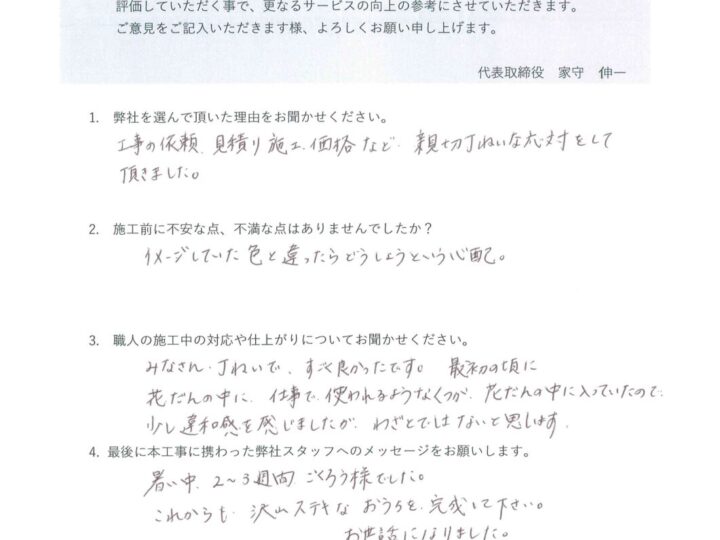 評価していただく事で、更なるサービスの向上の参考にさせていただきます。
ご意見をご記入いただきます様、よろしくお願い申し上げます。
代表取締役 家守 伸一
1. 弊社を選んで頂いた理由をお聞かせください。
工事の依頼、見積り施工、価格など、親切丁ねいな応対をして
頂きました。
2. 施工前に不安な点、不満な点はありませんでしたか？
イメージしていた色と違ったらどうしようという心配。
3. 職人の施工中の対応や仕上がりについてお聞かせください。
みなさん、丁ねいで、すごく良かったです。 最初の頃に
花だんの中に、仕事で使われるようなくつが、花だんの中に入っていたので、
少し違和感を感じましたが、わざとではないと思います。
4. 最後に本工事に携わった弊社スタッフへのメッセージをお願いします。
暑い中、2〜3週間、ごくろう様でした。
これからも、沢山ステキなおうちを、完成して下さい。
お世話になりました。